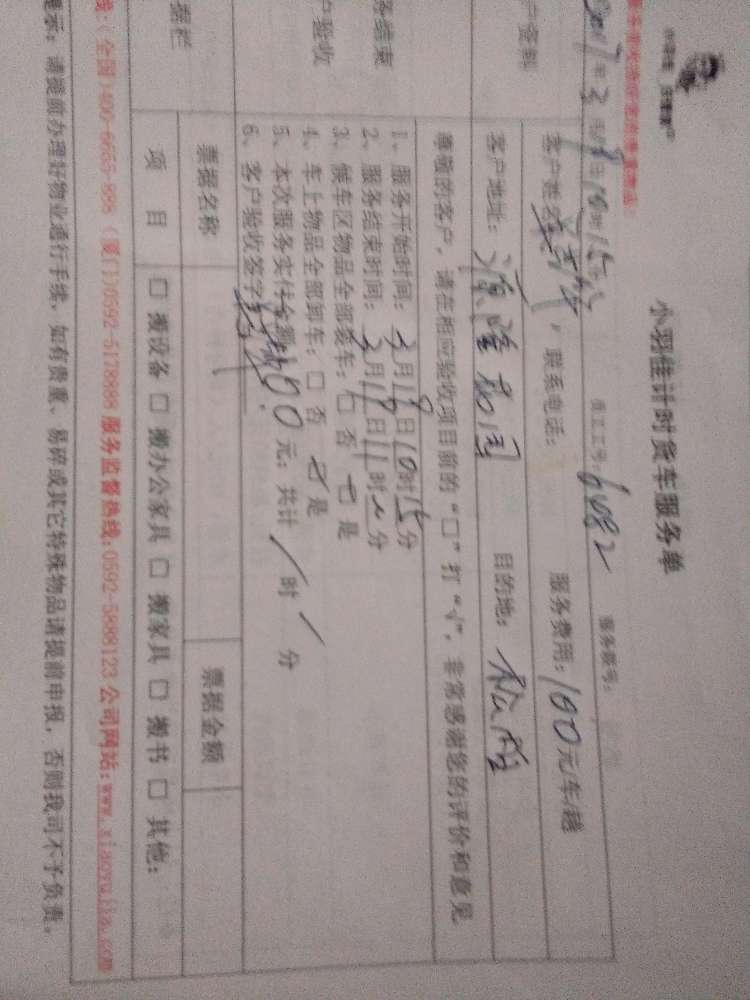 小羽佳计时货车服务单
员工工号：6082 服务账号：
2017年3月18日10时15分
客户签到
客户姓名，联系电话： 服务费用：100元/车/趟
客户地址：源隆花园 目的地：
尊敬的客户，请在相应验收项目前的“□”打“√”，非常感谢您的评价和意见
务结束
户验收
1、服务开始时间：3月18日10时15分
2、服务结束时间：3月18日11时分
3、候车区物品全部装车：□否 是
4、车上物品全部卸车：□否 是
5、本次服务实付金额00元；共计/时/分
6、客户验收签字
据栏
票据名称 票据金额
项目 □搬设备 □搬办公家具 □搬家具 □搬书 □其他：
线：（全国）400-6655-888 （厦门）0592-5178888 服务监督热线：0592-5888123 公司网站：www.xiaoyujia.com
提示：请提前办理好物业通行手续，如有贵重、易碎或其它特殊物品请提前申报，否则我司不予负责。